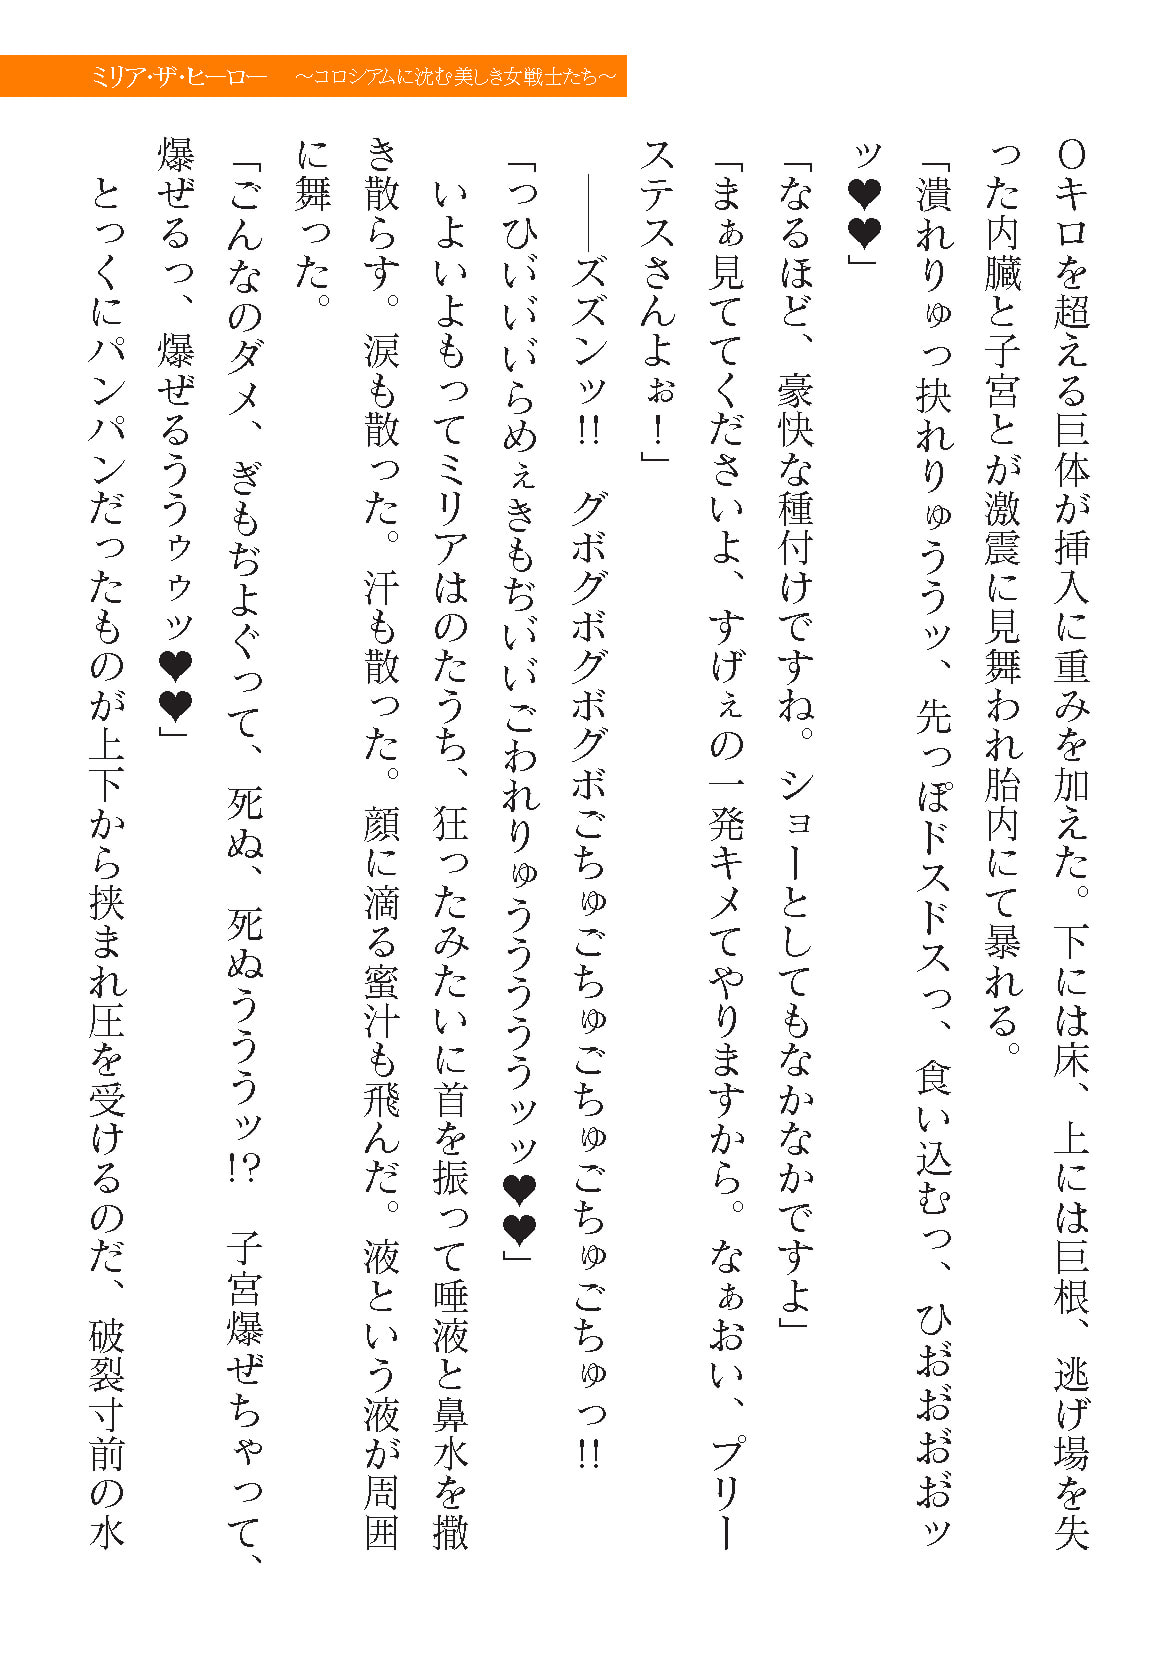 ミリア・ザ・ヒーロー　～コロシアムに沈む美しき女戦士たち～
〇キロを超える巨体が挿入に重みを加えた。下には床、上には巨根、逃げ場を失
った内臓と子宮とが激震に見舞われ胎内にて暴れる。
「潰れりゅっ抉れりゅうぅッ、先っぽドスドスっ、食い込むっ、ひお゙お゙お゙お゙ッ
ッ♥♥」
「なるほど、豪快な種付けですね。ショーとしてもなかなかですよ」
「まぁ見ててくださいよ、すげぇの一発キメてやりますから。なぁおい、プリー
ステスさんよぉ！」
――ズズンッ!!　グボグボグボグボごちゅごちゅごちゅごちゅごちゅっ!!
「っひい゙い゙い゙らめぇきもぢい゙い゙ごわれりゅうううううッッ♥♥」
いよいよもってミリアはのたうち、狂ったみたいに首を振って唾液と鼻水を撒
き散らす。涙も散った。汗も散った。顔に滴る蜜汁も飛んだ。液という液が周囲
に舞った。
「ごんなのダメ、ぎもぢよぐって、死ぬ、死ぬうううッ!?　子宮爆ぜちゃって、
爆ぜるっ、爆ぜるううゥゥッ♥♥」
とっくにパンパンだったものが上下から挟まれ圧を受けるのだ、破裂寸前の水